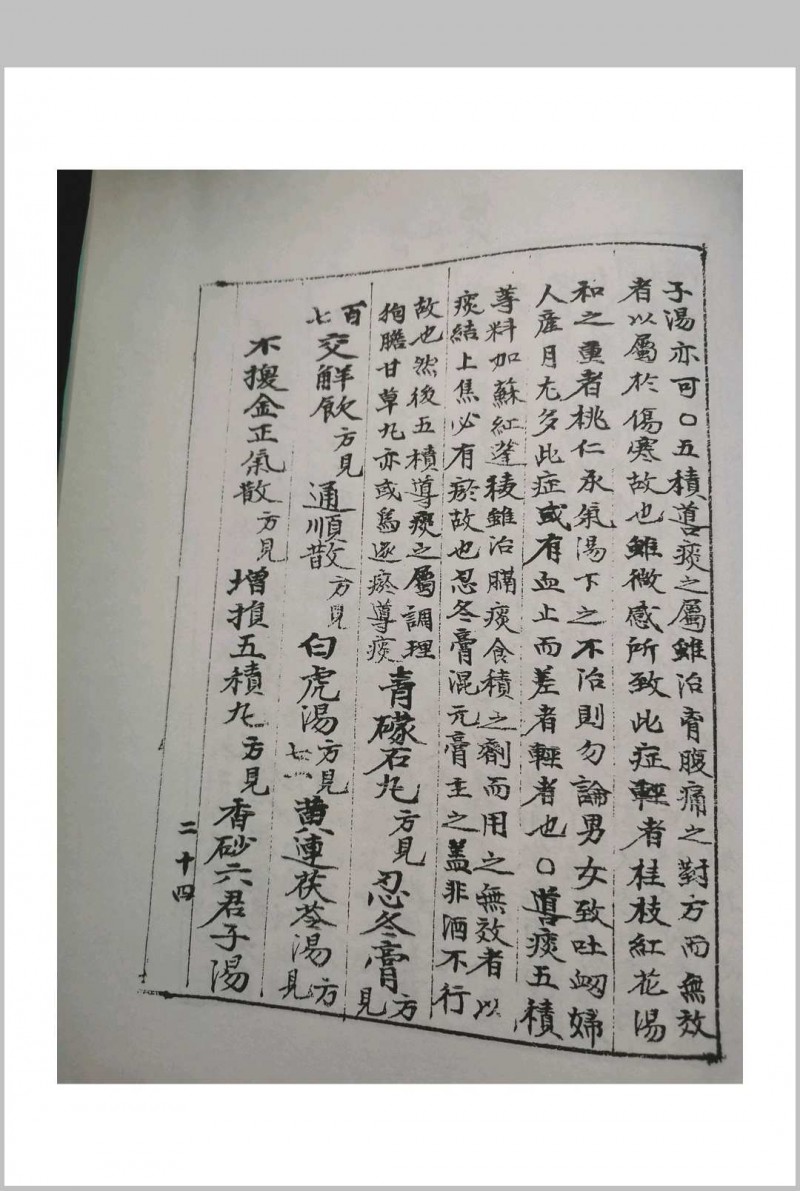 子湯亦可〇五積導痰之屬雖治胷腹痛之對方而無效
者以屬於傷寒故也雖微感所致此症輕者桂枝紅花湯
和之重者桃仁承氣湯下之不治則勿論男女致吐衂婦
人産月尤多此症或有血止而差者輕者也〇導痰五積
等料加蘇紅蓬稜雖治膈痰食積之劑而用之無效者以
痰結上焦必有瘀故也忍冬膏混元膏主之盖非酒不行
故也然後五積導痰之屬調理
狗膽甘草丸亦或爲逐瘀導痰
青礞石丸方見
忍冬膏方見
百七
交解飲方見
通順散方見
白虎湯方見七
黄連茯苓湯方見
不換金正氣散方見
增損五積丸方見
香砂六君子湯
二十四